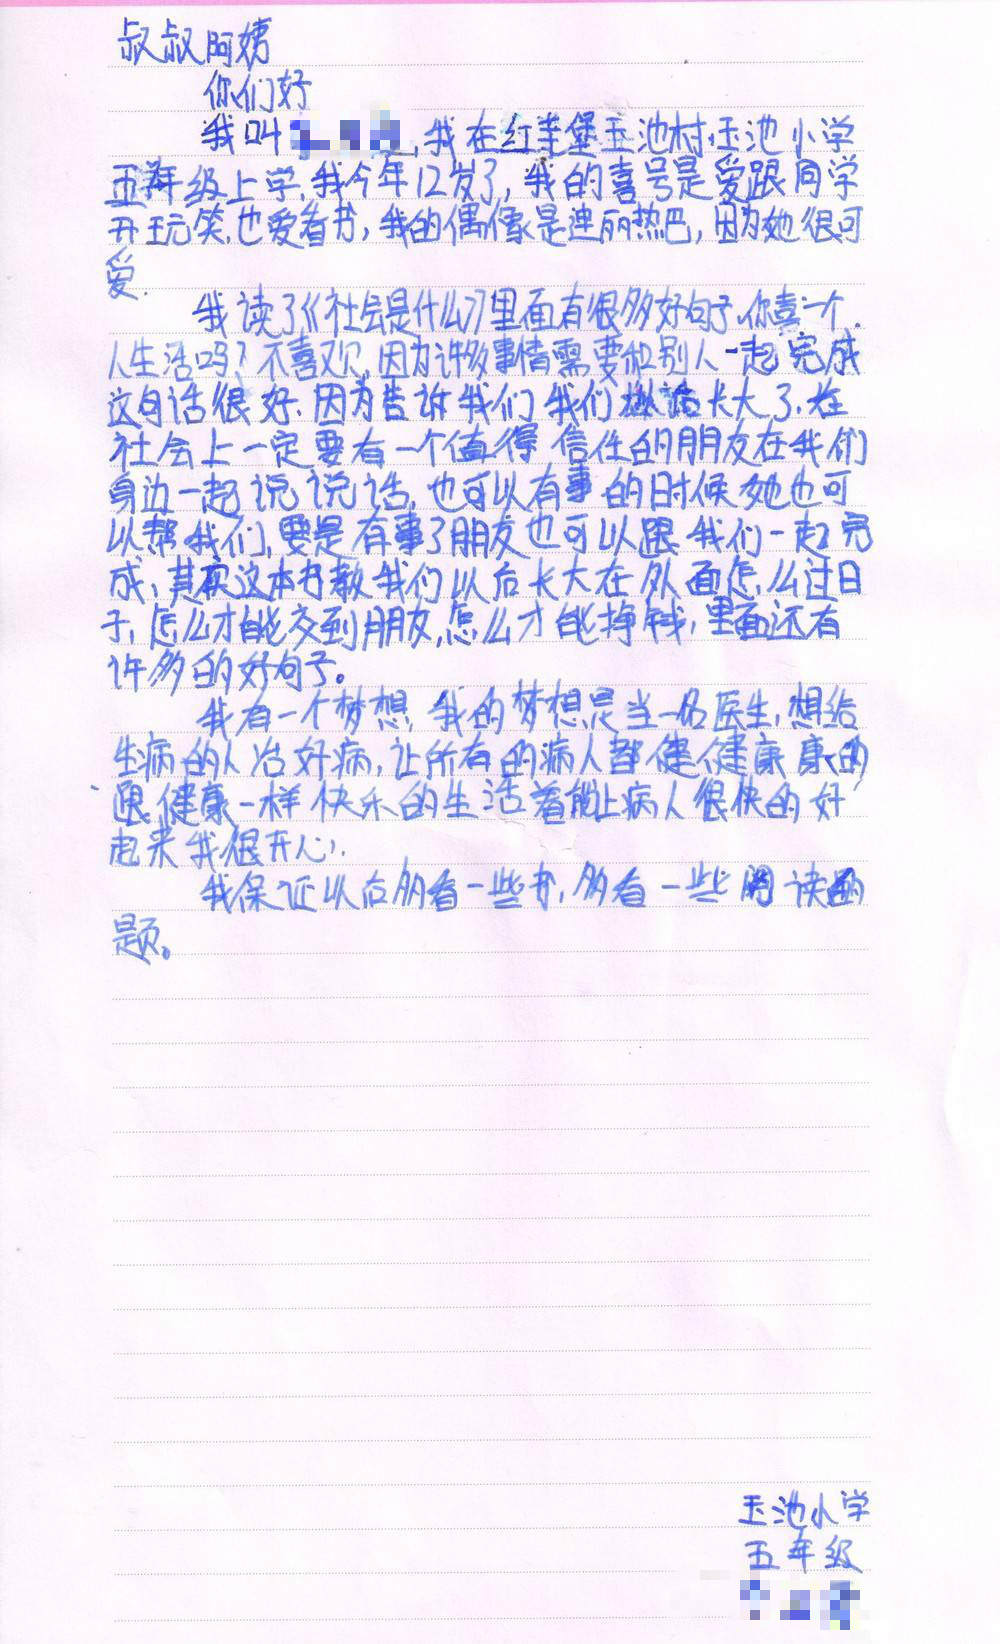 叔叔阿姨
你们好
我叫 ,我在红圭堡玉池村玉池小学
五年级上学,我今年12岁了,我的喜号是爱跟同学
开玩笑,也爱看书,我的偶像是迪丽热巴,因为她很可
爱.
我读了《社会是什么》里面有很多好句子,你喜一个
人生活吗?不喜欢,因为许多事情需要和别人一起完成
这句话很好.因为告诉我们我们 长大了,在
社会上一定要有一个值得信任的朋友在我们
身边一起说说话,也可以有事的时候她也可
以帮我们,要是有事了朋友也可以跟我们一起完
成,其实这本书教我们以后长大在外面怎么过日
子,怎么才能交到朋友,怎么才能挣钱,里面还有
许多的好句子。
我有一个梦想,我的梦想是当一名医生,想给
生病的人治好病,让所有的病人都健健康康的
跟健康一样快乐的生活着能让病人很快的好
起来我很开心.
我保证以后多看一些书,多看一些阅读的
题。
玉池小学
五年级